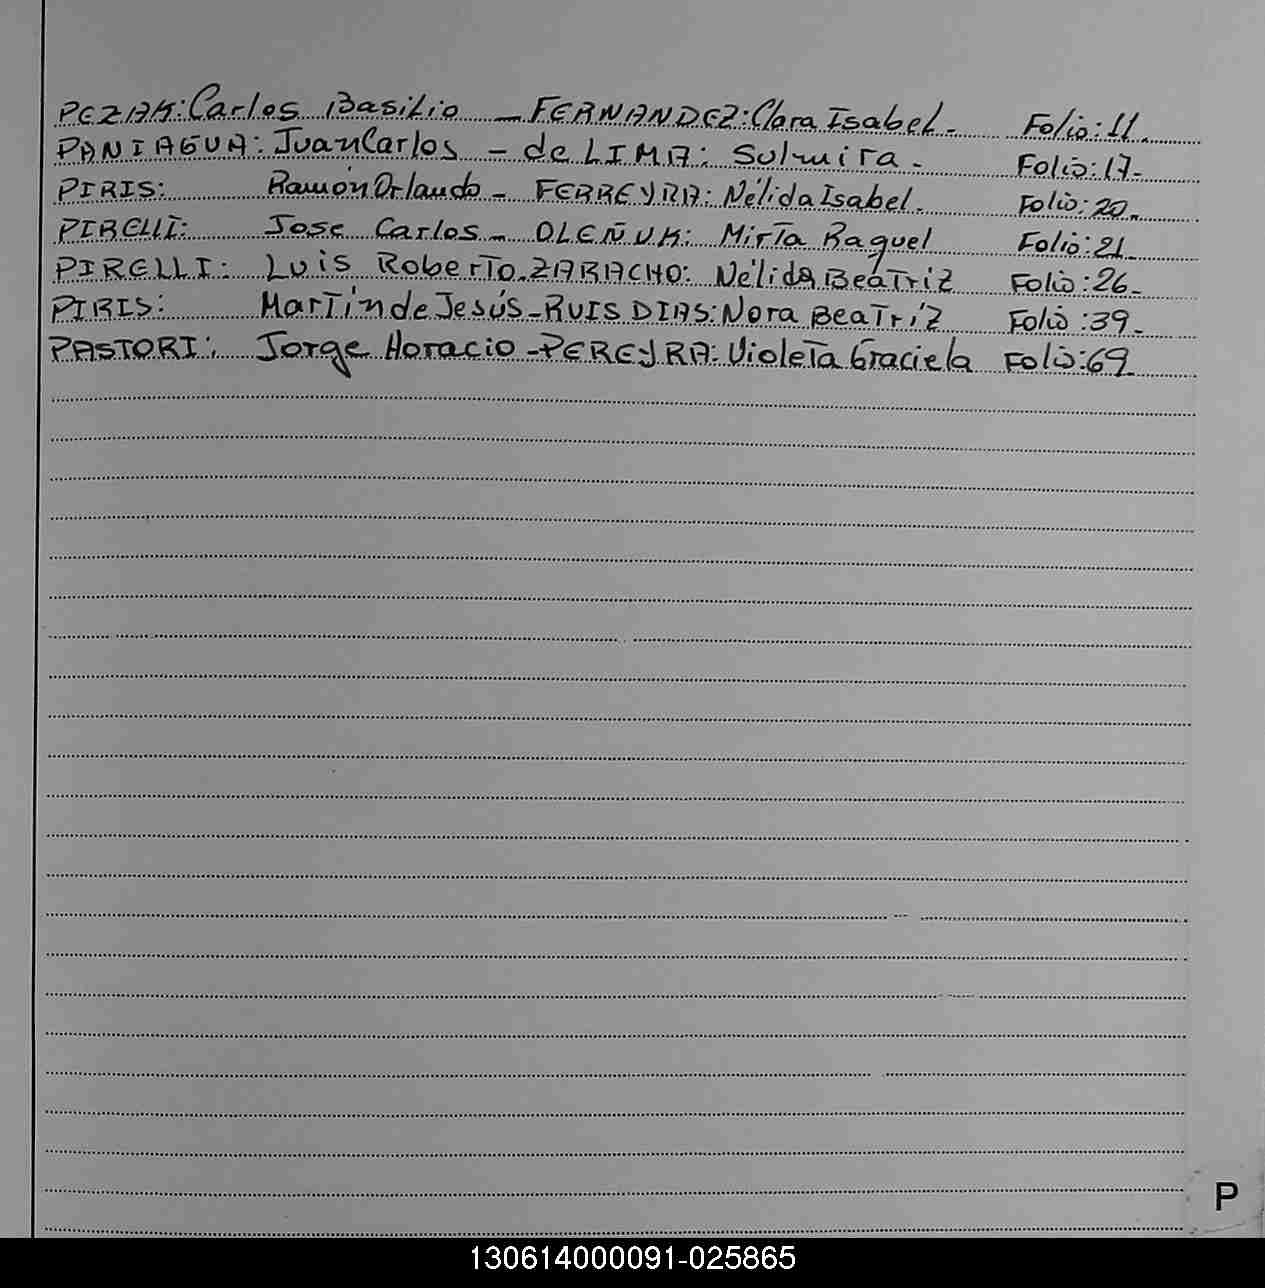 PEZAK: Carlos Basilio - FERNANDEZ: Clara Isabel. Folio: 11.
PANIAGUA: Juan Carlos - de LIMA: Sulmira. Folio: 17-
PIRIS: Ramón Orlando - FERREYRA: Nélida Isabel. Folio: 20.
PIRELLI: Jose Carlos - OLEÑUK: Mirta Raquel Folio: 21
PIRELLI: Luis Roberto. ZARACHO: Nélida Beatriz Folio: 26-
PIRIS: Martín de Jesús - RUIS DIAS: Nora Beatríz Folio: 39-
PASTORI: Jorge Horacio - PEREYRA: Violeta Graciela Folio: 69
P
130614000091-025865